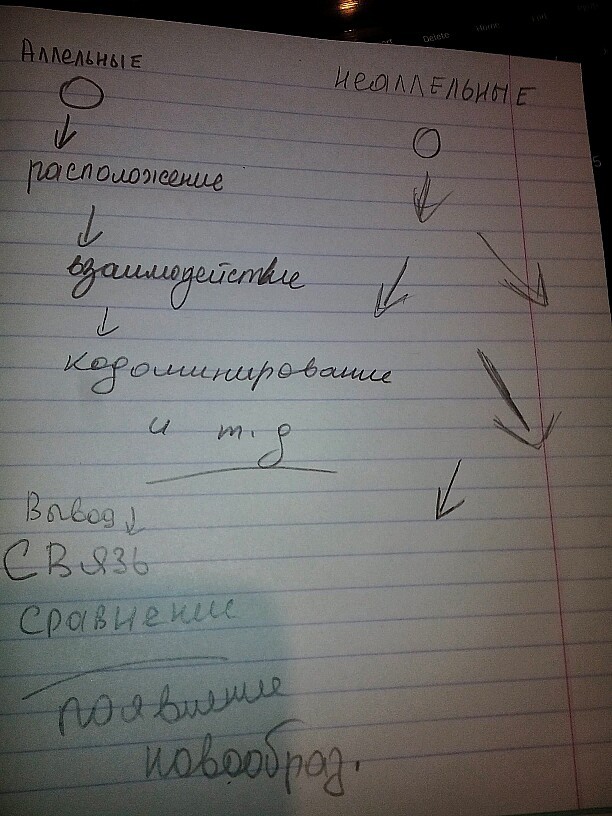 Аллельные
неаллельные
расположение
взаимодействие
кодоминирование
и т.д
Вывод
Связь
Сравнение
появление
новообраз.
Delete
Home